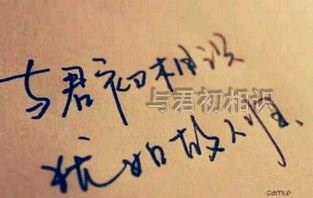 与君初相识
与君初相识
犹如故人归。